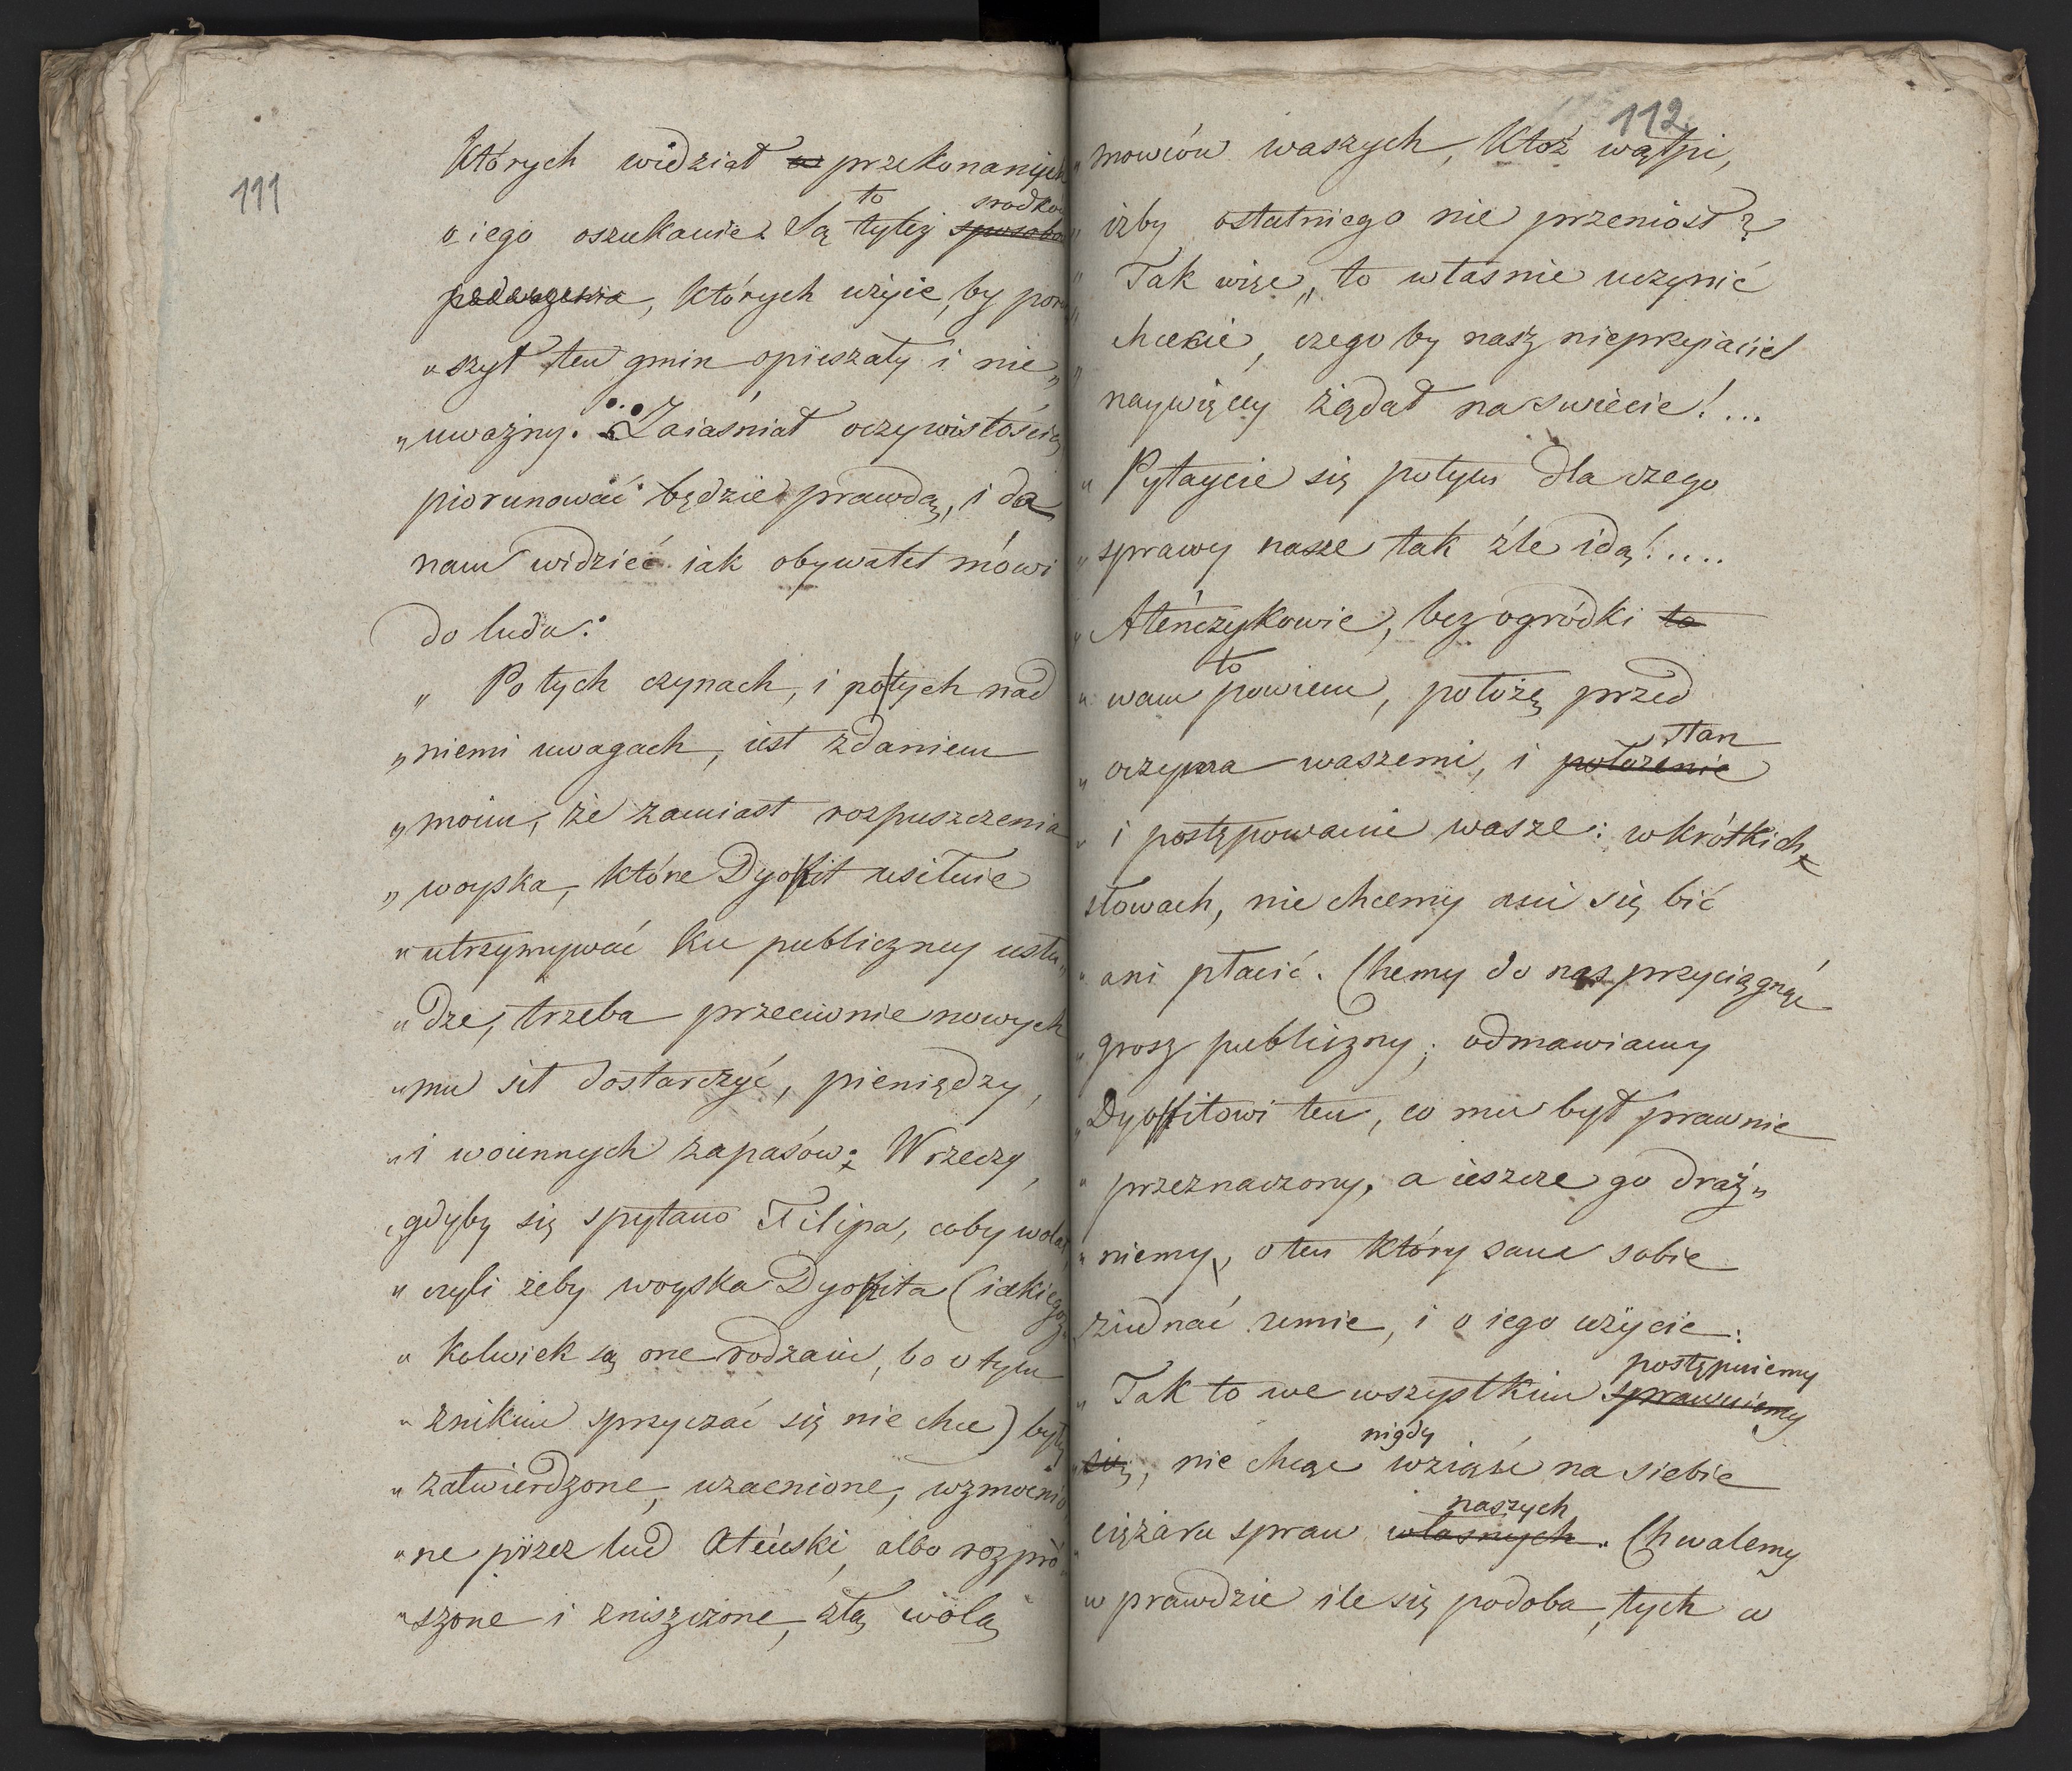 111
których widział w przekonanych
to srodkow
o iego oszukanie? Są tylej sposobow
podeyzenia, których użyie, by poru
„szył ten gmin opieszały i nie„
„uważny. Zaiaśniał oczywistością
piorunować będzie prawdą, i da
nam widzieć iak obywatel mówi
do ludu:
„ Po tych czynach, i po tych nad
„niemi uwagach, iest zdaniem
„moim, że zamiast rozpuszczenia
„woyska, które Dyofit usiłuie
„utrzymywać ku publiczney usłu„
„dze, trzeba przeciwnie nowych
„mu sił dostarczyć, pieniędzy,
„i woiennych zapasów; W rzeczy,
„gdyby się spytano Filipa, coby wolał,
„czyli żeby woyska Dyofita (iakiegoż„
„kolwiek są one rodzaiu, bo o tym
„znikim sprzyczać się nie chcę) były
„zatwierdzone, uzacnione, wzmocnio„
„ne przez lud Ateński, albo rozpró„
„szone i zniszczone, złą wolą
112
„mowców waszych, któż wątpi,
„iżby ostatniego nie przeniosł?
„Tak więc, to własnie uczynić
„chcecie, czego by nasz nieprzyiaciel
„naywięcey żądał na swiecie!...
„Pytaycie się potym dla czego
„sprawy nasze tak źle idą!....
„Ateńczykowie, bez ogródki to
to
„wam powiem, położę przed
stan
„oczyma waszemi, i położenie
„i postępowanie wasze: w krótkich
słowach, nie chcemy ani się bić
„ani płacić. Chemy do nas przyciągnąć
„grosz publiczny; odmawiamy
„Dyofitowi ten, co mu był prawnie
„przeznaczony, a ieszcze go draż„
„niemy, o ten który sam sobie
ziednać umie, i o iego użycie:
postępuiemy
„Tak to we wszystkim sprawuiemy
nigdy
„się, nie chcąc wziąść na siebie
naszych
„ciężaru spraw własnych. Chwalemy
w prawdzie ile się podoba, tych co